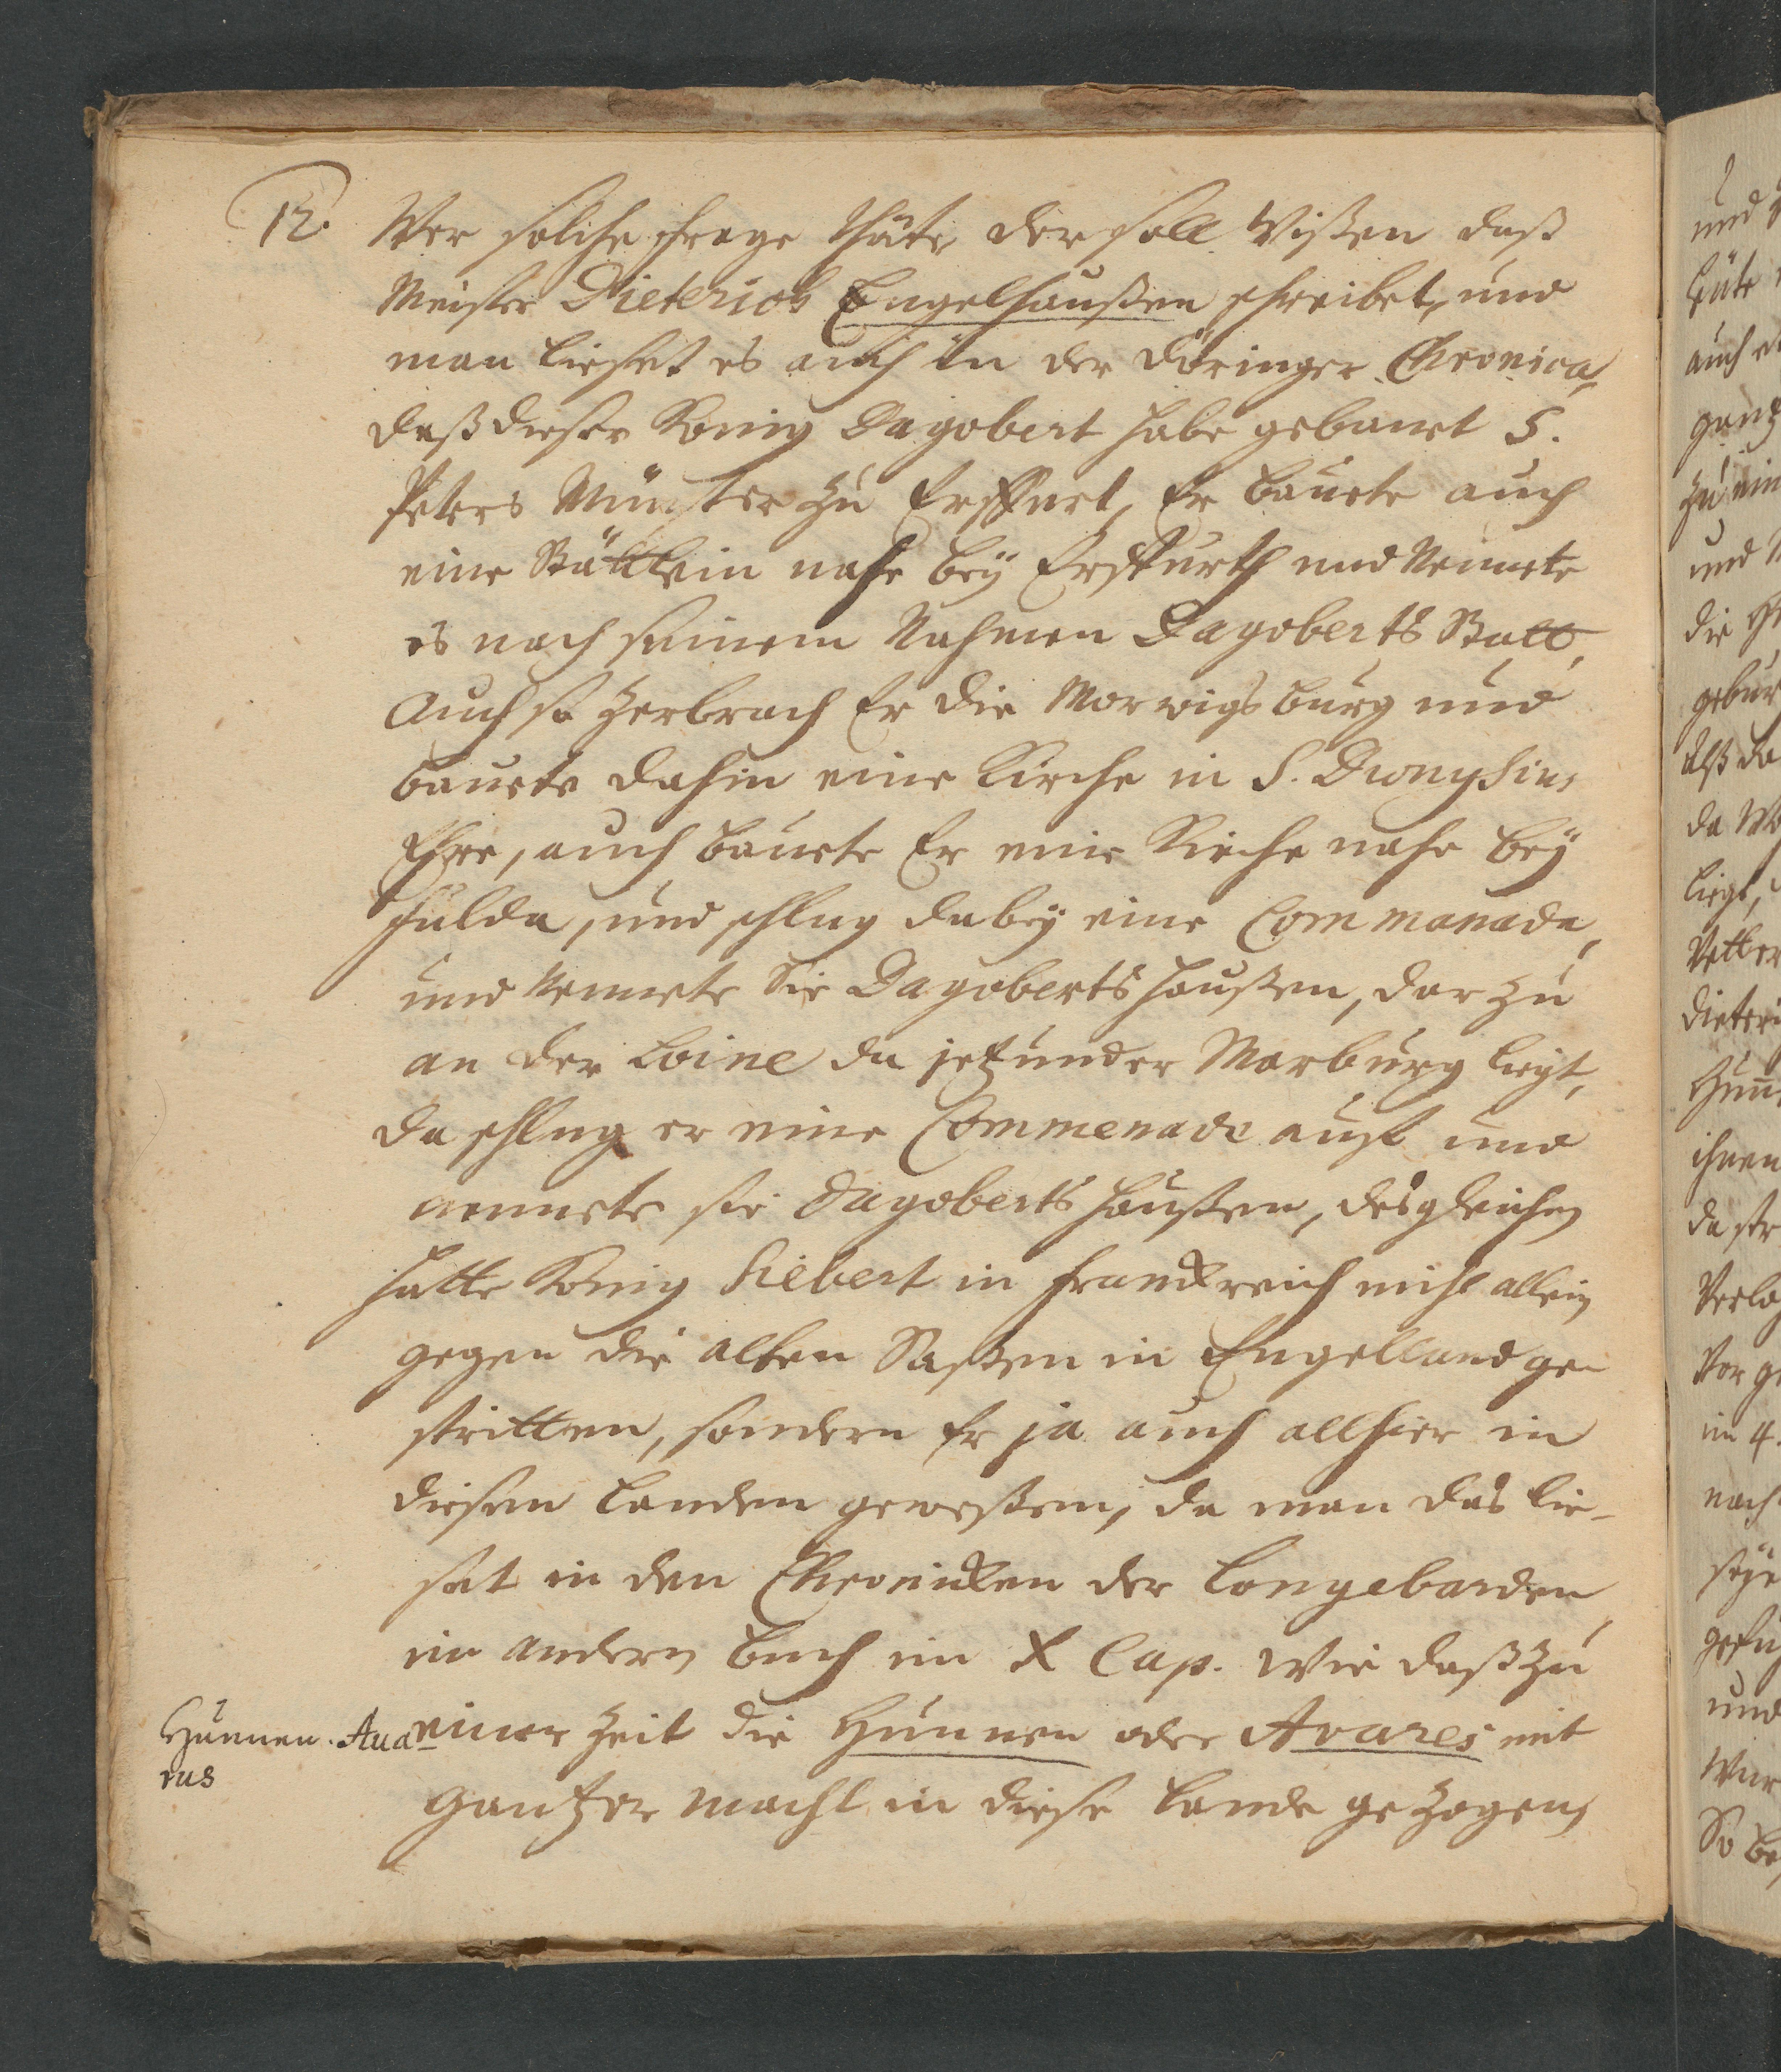 12.
Wer solche frage thäte der soll Wißen daß
Meister Dieterich Engelhaußen schreibet, und
man lieset es auch in der Döringer Chronica,
daß dieser König Dagobert habe gebauet S.
Peters Münster zu Erffurt, Er bauete auch
eine Stättlein nahe bey Erffurth und Nennete
es nach seinem Nahmen Dagoberts Statt,
Auch so Zerbrach Er die Merwigsburg und
bauete dahin eine Kirche in S. Dionysius
Ehre, auch bauete Er eine Kirche nahe bey
Fulda, und schlug dabey eine Commanade,
und Nennete Sie Dagobertshaußen, dar zu
an der Loine da jetzunder Marburg liegt,
da schlug er eine Commenade auf und
nennete sie Dagobertshaußen, desgleichen
hatte König Siebert in Franckreich nicht allein
gegen die alten Saßen in Engelland ge-
stritten, sondern Er ja auch allhier in
diesen Landen geweßen, da man das lie-
set in den Chronicken der Longebarden
im andern Buch im X Cap. Wie daß zu
einer Zeit die Hunnen oder Avares mit
gantzer Macht in diese Lande gezogen,
Hunnen. Aua-
rus
und
Leute
auch
gantz
zu
und
die
gebur
alß da
da
liegt,
Vetter
Dieteri
Hunn
ihnen
da
Verlo
Vor ge
im 4.
nach
seye
und
War
So be